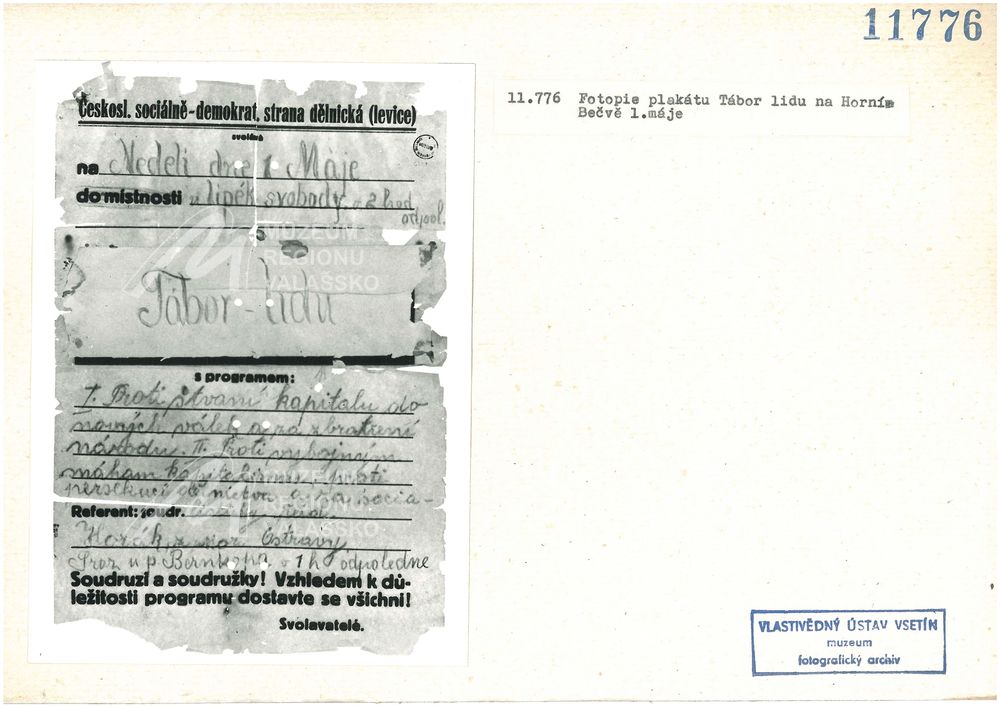 11776
Českosl. sociálně-demokrat. strana dělnická (levice)
svolává
na Neděli dne 1 Máje
do místnosti u lipék svobody o 2 hod
odpol.
MUZEUM
REGIONU
VALAŠSKO
Tábor-lidu
s programem:
I. Proti štvaní kapitalu do
nových válek a za zbratření
národu. II. Proti vybojným
máham kapitalismu, proti
persekuci dělnictva a za socia-
Referent: soudr.
Horák z mor Ostravy
Sraz u p Bernkopa o 1 h odpoledne
Soudruzi a soudružky! Vzhledem k dů-
ležitosti programu dostavte se všichni!
Svolavatelé.
11.776 Fotopie plakátu Tábor lidu na Horním
Bečvě 1.máje
VLASTIVĚDNÝ ÚSTAV VSETÍN
muzeum
fotografický archiv